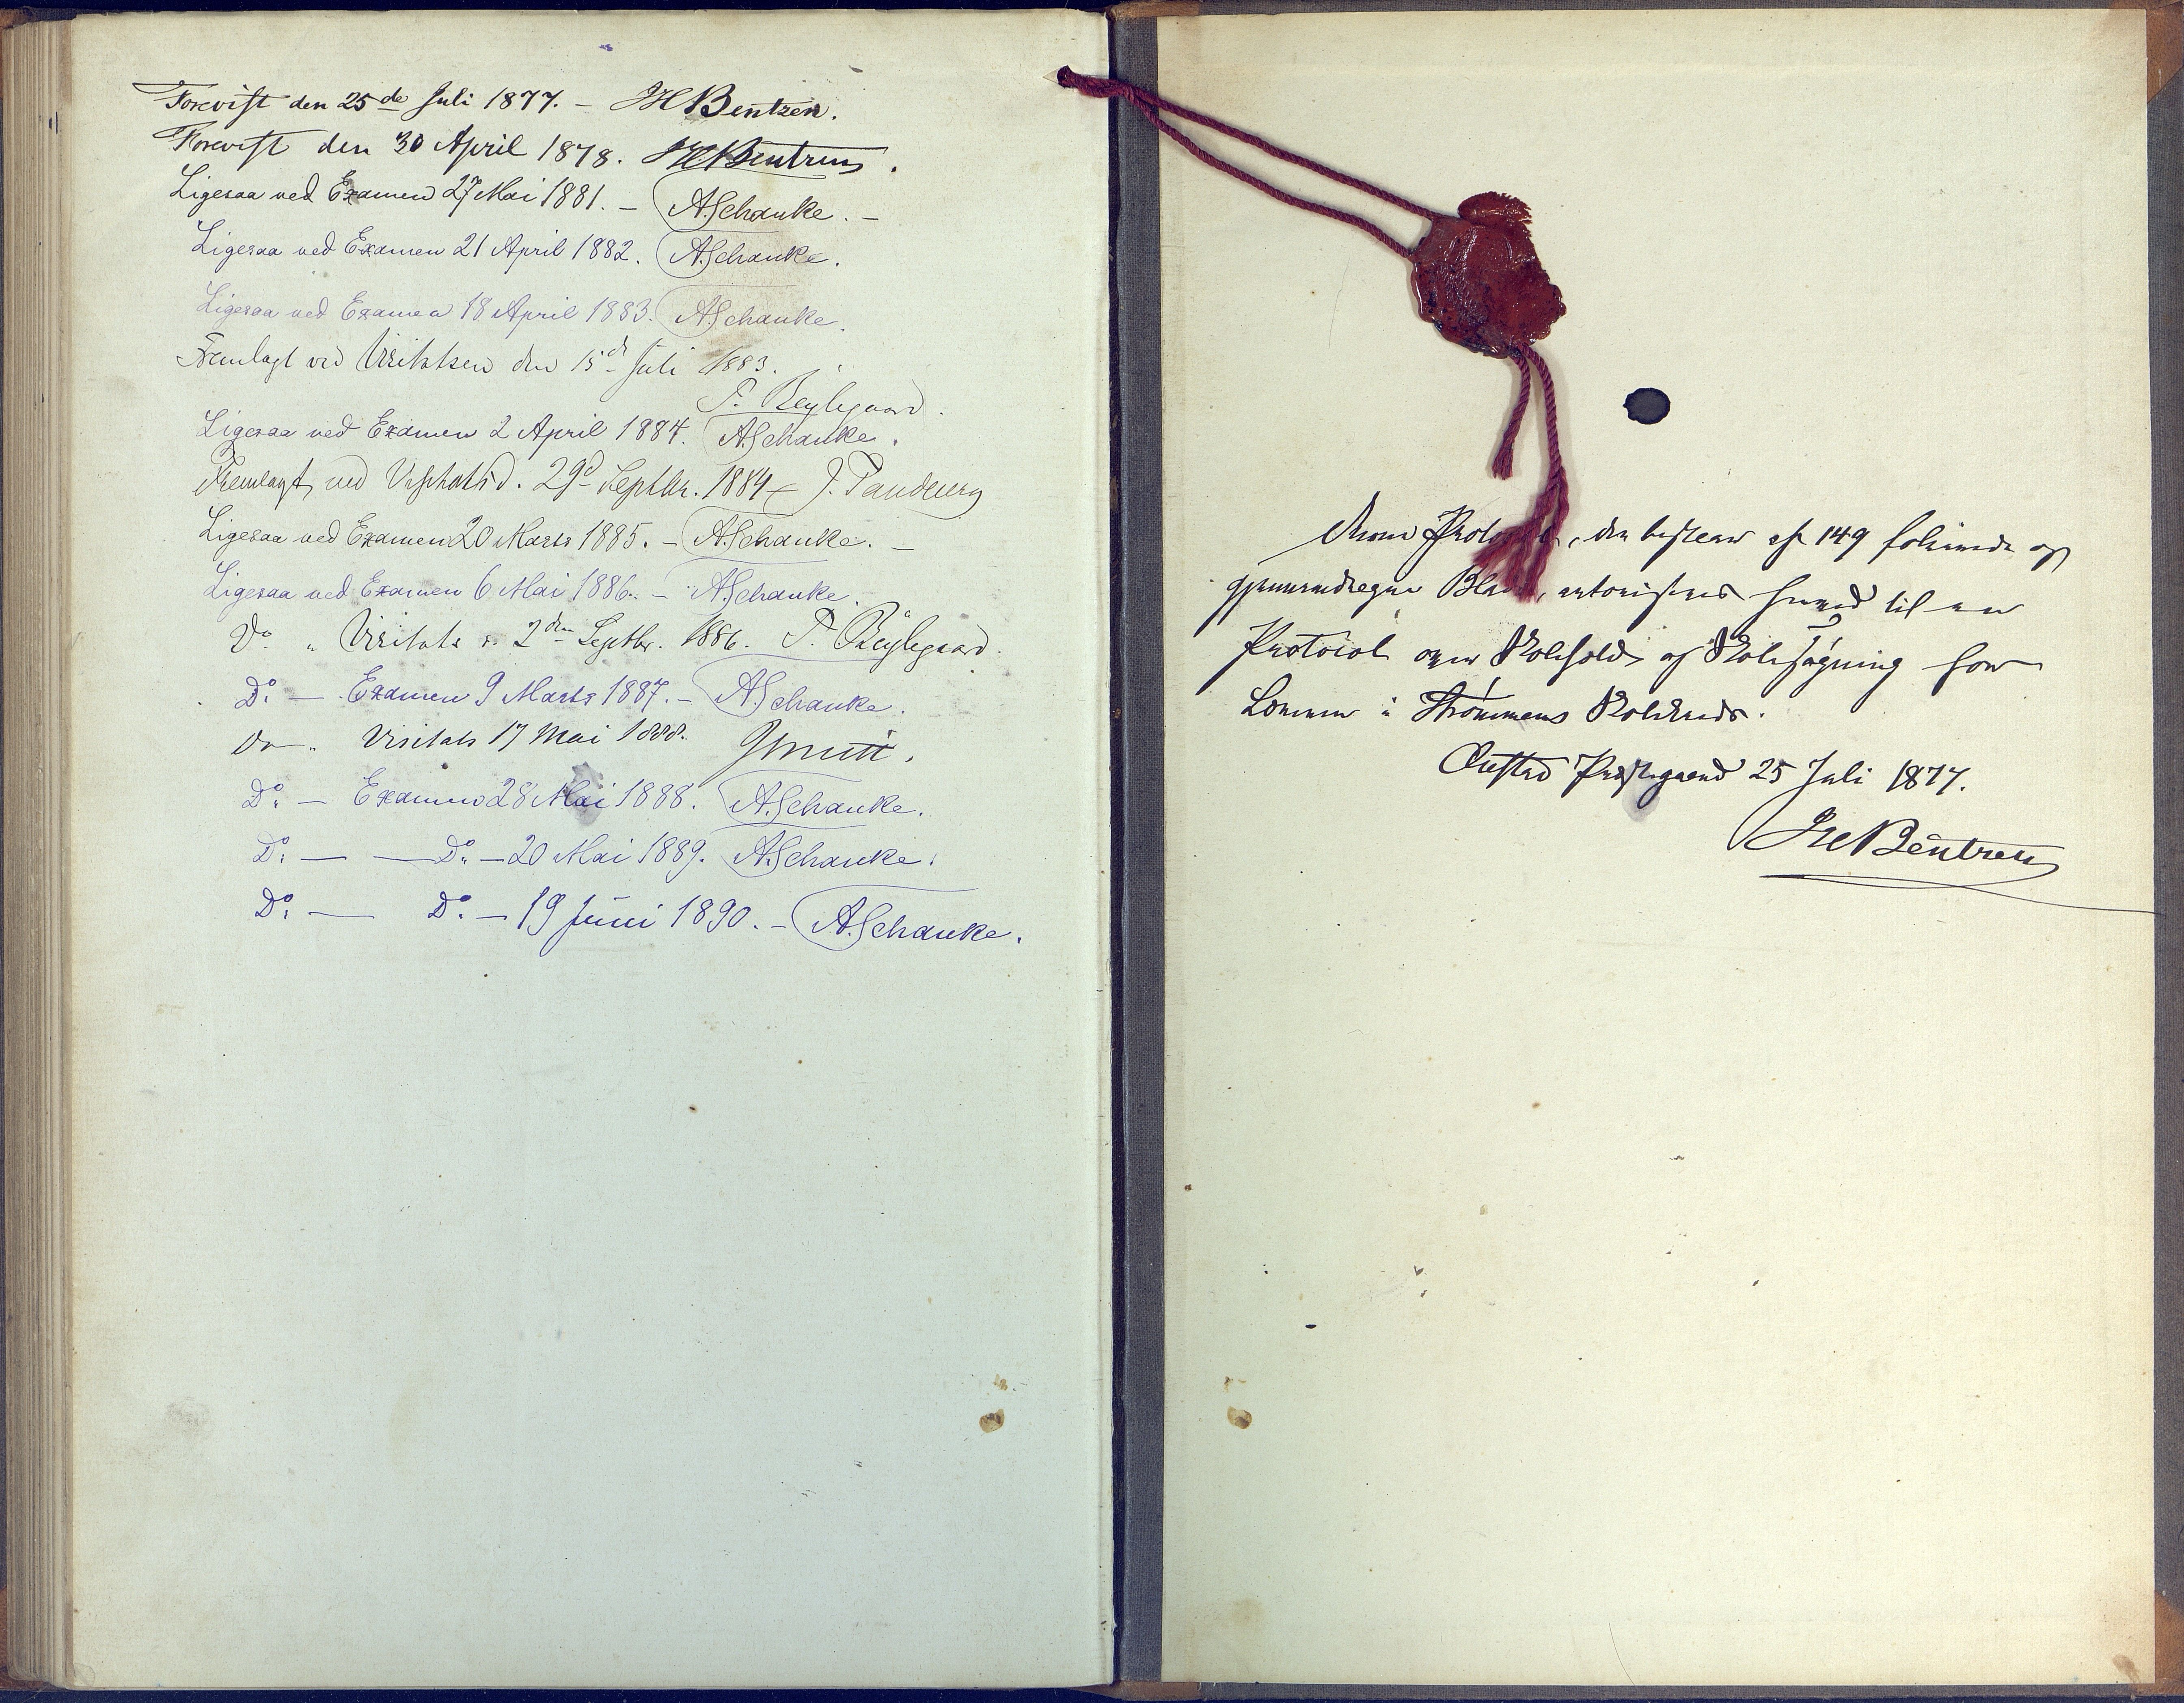 Forevist den 25de Juli 1877. – JH Bentzen.
Forevist den 30 April 1878. JH Bentzen.
Ligesaa ved Examen 27 Mai 1881. – A. Schanke. –
Ligesaa ved Examen 21 April 1882. A. Schanke.
Ligesaa ved Examen 18 April 1883. A. Schanke.
Fremlagt ved Visitatsen den 15de Juli 1883.
Ligesaa ved Examen 2 April 1884. A. Schanke.
Fremlagt ved Visitats d. 29d Septbr. 1884 – J.
Ligesaa ved Examen 20 Marts 1885. – A. Schanke. –
Ligesaa ved Examen 6 Mai 1886. – A. Schanke.
Do. " Visitats d. 2den Septbr. 1886.
Do. – Examen 9 Marts 1887. – A. Schanke.
Do " Visitats 17 Mai 1888.
Do. – Examen 28 Mai 1888. A. Schanke.
Do. — — Do. – 20 Mai 1889. A. Schanke.
Do. — Do. – 19 Juni 1890. – A. Schanke.
Denne Protocol, der bestaar af 149 folierede og
gjennemdragne Blade, autoriseres herved til en
Protocol over Skolehold og Skolesøgning for
i Strømmens Skolekreds.
Øiestad Præstegaard 25 Juli 1877.
JH Bentzen